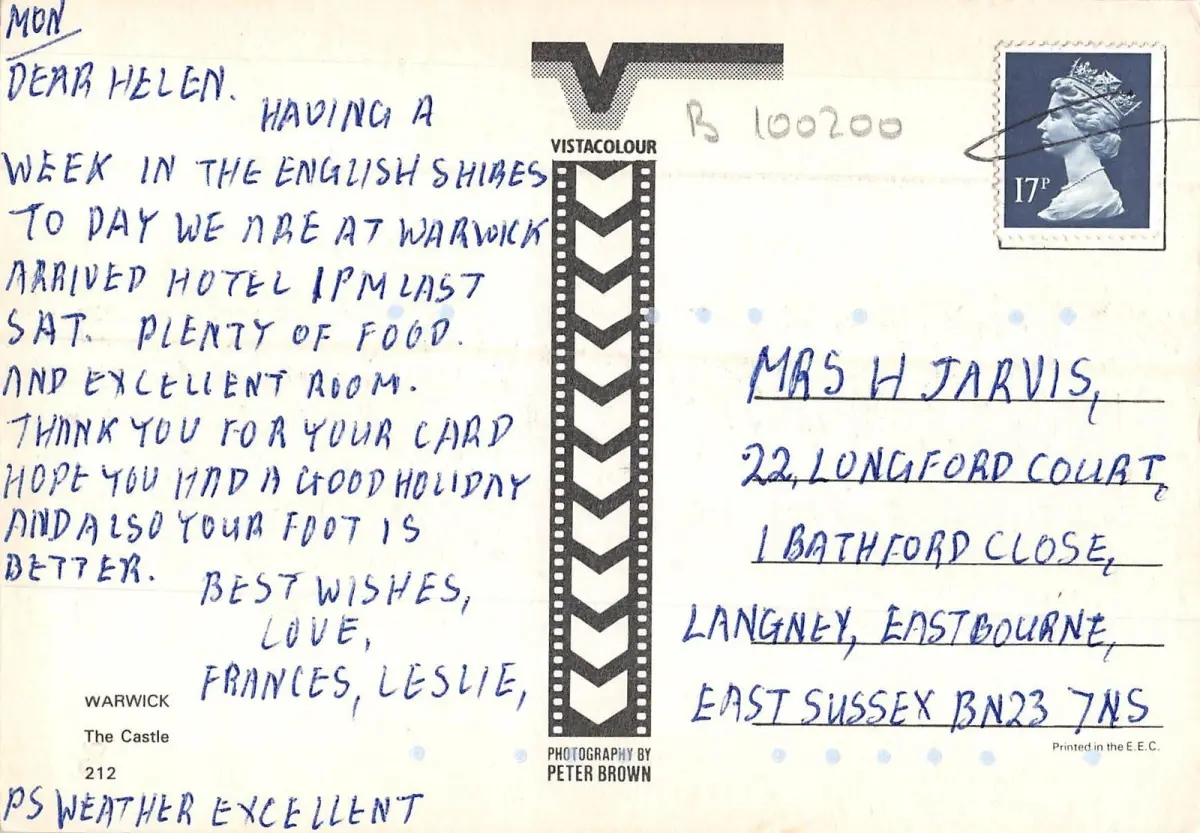 MON
DEAR HELEN.
HAVING A
WEEK IN THE ENGLISH SHIRES
TO DAY WE ARE AT WARWICK
ARRIVED HOTEL 1PM LAST
SAT. PLENTY OF FOOD.
AND EXCELLENT ROOM.
THANK YOU FOR YOUR CARD
HOPE YOU HAD A GOOD HOLIDAY
AND ALSO YOUR FOOT IS
BETTER.
BEST WISHES,
LOVE,
FRANCES, LESLIE,
WARWICK
The Castle
212
PS WEATHER EXCELLENT
VISTACOLOUR
PHOTOGRAPHY BY
PETER BROWN
B 100200
17P
MRS H JARVIS,
22, LONGFORD COURT,
1 BATHFORD CLOSE,
LANGNEY, EASTBOURNE,
EAST SUSSEX BN23 7NS
Printed in the E.E.C.